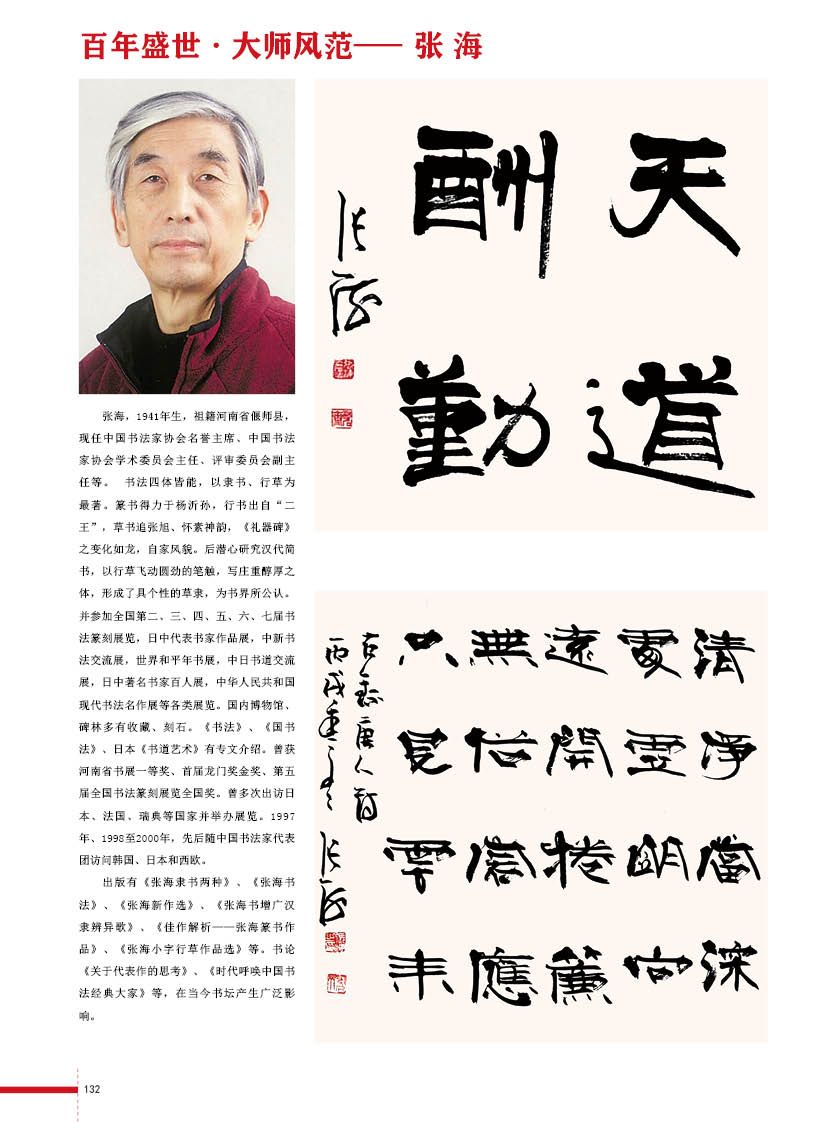 百年盛世·大师风范—— 张 海
天道
酬勤
张海
张海，1941年生，祖籍河南省偃师县，
现任中国书法家协会名誉主席、中国书法
家协会学术委员会主任、评审委员会副主
任等。 书法四体皆能，以隶书、行草为
最著。篆书得力于杨沂孙，行书出自“二
王”，草书追张旭、怀素神韵，《礼器碑》
之变化如龙，自家风貌。后潜心研究汉代简
书，以行草飞动圆劲的笔触，写庄重醇厚之
体，形成了具个性的草隶，为书界所公认。
并参加全国第二、三、四、五、六、七届书
法篆刻展览，日中代表书家作品展，中新书
法交流展，世界和平年书展，中日书道交流
展，日中著名书家百人展，中华人民共和国
现代书法名作展等各类展览。国内博物馆、
碑林多有收藏、刻石。《书法》、《国书
法》、日本《书道艺术》有专文介绍。曾获
河南省书展一等奖、首届龙门奖金奖、第五
届全国书法篆刻展览全国奖。曾多次出访日
本、法国、瑞典等国家并举办展览。1997
年、1998至2000年，先后随中国书法家代表
团访问韩国、日本和西欧。
出版有《张海隶书两种》、《张海书
法》、《张海新作选》、《张海书增广汉
隶辨异歌》、《佳作解析——张海篆书作
品》、《张海小字行草作品选》等。书论
《关于代表作的思考》、《时代呼唤中国书
法经典大家》等，在当今书坛产生广泛影
响。
清淨當深
處虛明向
遠開捲簾
無俗客應
只見雲来
唐人詩
丙戌
张海
132